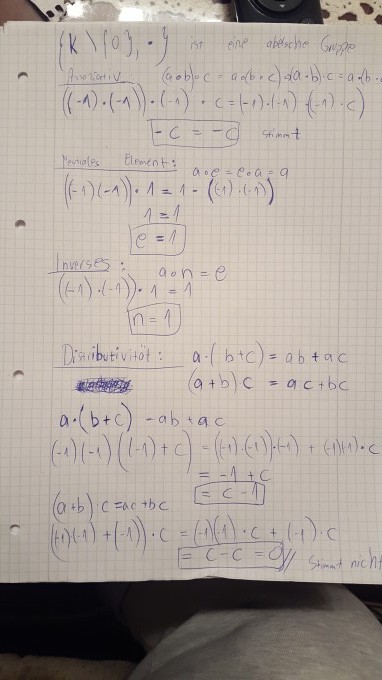 {K \ {0}, •} ist eine abelsche Gruppe
Assoziativ (a∘b)∘c = a∘(b∘c) (a·b)·c = a·(b·
((-1)·(-1))·(-1)·c = (-1)·(-1)·((-1)·c)
-c = -c stimmt
Neutrales Element: a∘e = e∘a = a
((-1)(-1))·1 = 1·((-1)·(-1))
1 = 1
e = 1
Inverses: a∘n = e
((-1)·(-1))·1 = 1
n = 1
Distributivität: a·(b+c) = ab + ac
(a+b)c = ac + bc
a·(b+c) = ab + ac
(-1)(-1)((-1)+c) = ((-1)·(-1))·(-1) + (-1)(-1)·c
= -1 + c
= c - 1
(a+b)·c = ac + bc
((-1)(-1) + (-1))·c = (-1)(-1)·c + (-1)·c
= c - c = 0 // stimmt nicht